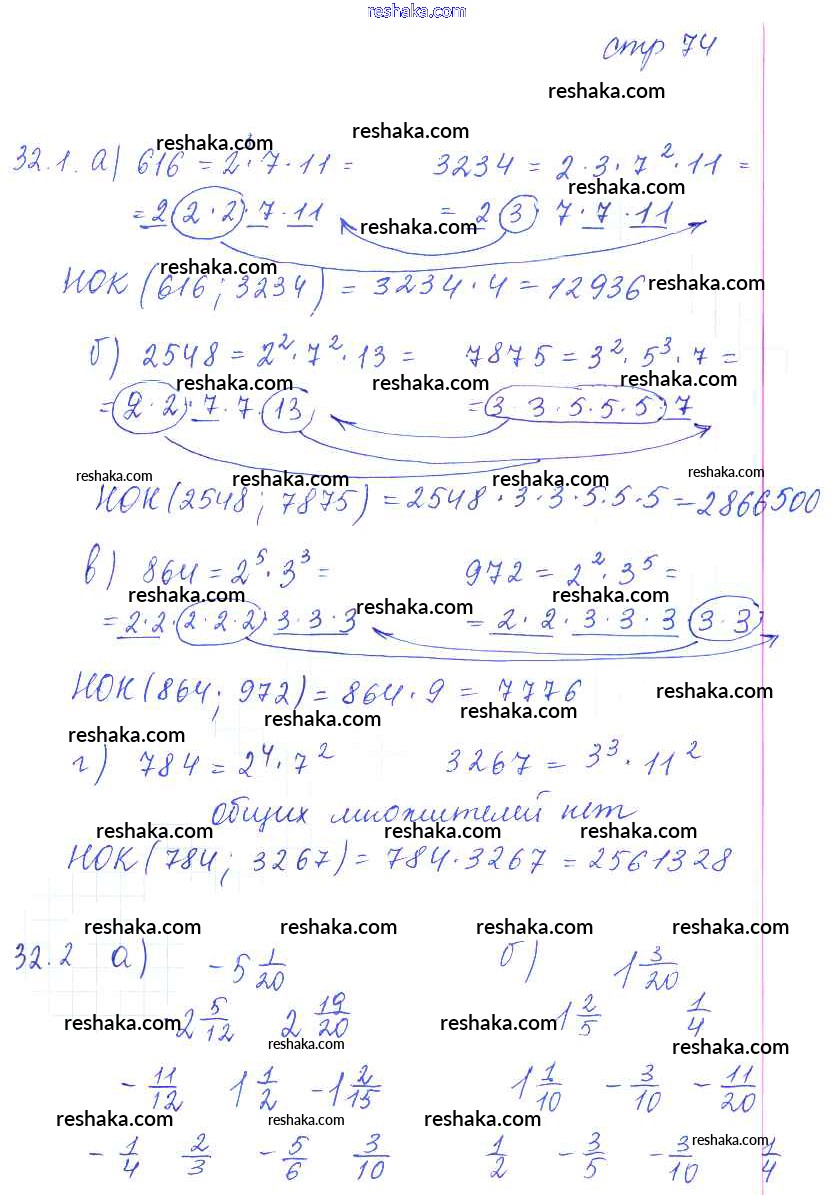 reshaka.com
стр 74
reshaka.com
reshaka.com reshaka.com
32.1. а) 616 = 2³·7·11 = 3234 = 2·3·7²·11 =
reshaka.com
= 2 2·2·7·11 = 2 3· 7·7·11
reshaka.com
reshaka.com reshaka.com
НОК (616; 3234) = 3234·4 = 12936
б) 2548 = 2²·7²·13 = 7875 = 3²·5³·7 =
reshaka.com reshaka.com reshaka.com
= 2·2·7·7·13 = 3 3·5·5·5·7
reshaka.com reshaka.com reshaka.com reshaka.com
НОК (2548; 7875) = 2548·3·3·5·5·5 = 2866500
в) 864 = 2⁵·3³ = 972 = 2²·3⁵ =
reshaka.com reshaka.com reshaka.com
= 2·2·2·2·2·3·3·3 = 2·2·3·3·3·3·3
НОК (864; 972) = 864·9 = 7776
reshaka.com
reshaka.com reshaka.com reshaka.com
г) 784 = 2⁴·7² 3267 = 3³·11²
общих множителей нет
reshaka.com reshaka.com reshaka.com
НОК (784; 3267) = 784·3267 = 2561328
reshaka.com reshaka.com reshaka.com reshaka.com
32.2 а) -5 1/20 б) 1 3/20
reshaka.com 2 5/12 2 19/20 reshaka.com 1 2/5 1/4
reshaka.com reshaka.com
-11/12 1 1/2 -1 2/15 1 1/10 -3/10 -11/20
reshaka.com reshaka.com reshaka.com reshaka.com
-1/4 2/3 -5/6 3/10 1/2 -3/5 -3/10 1/4
reshaka.com